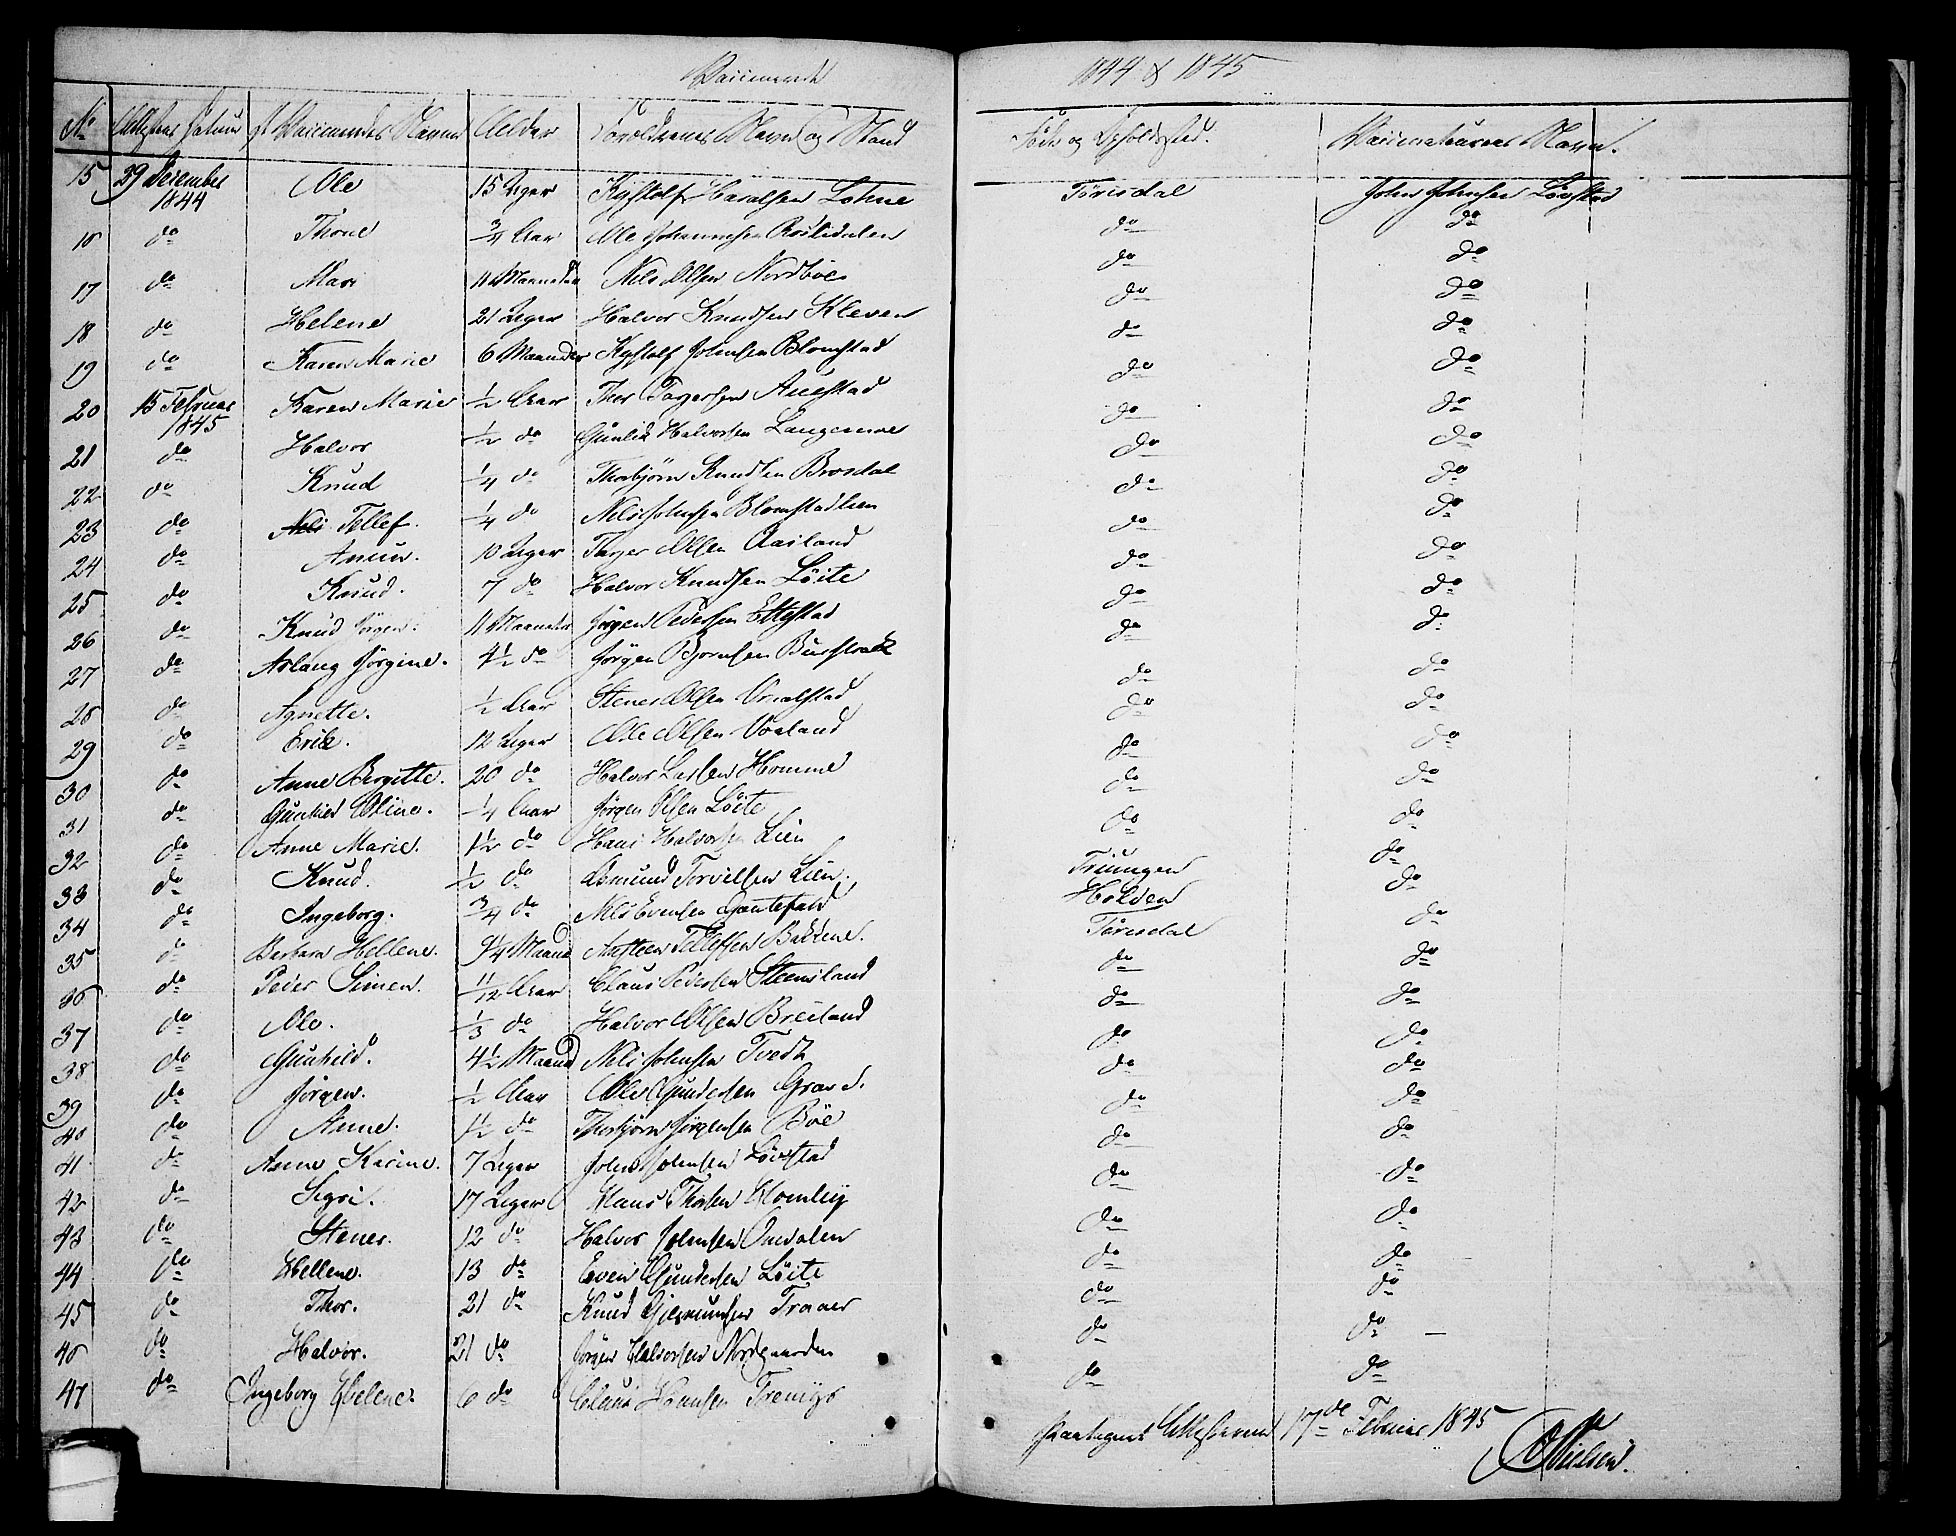 Vaccinerede 1844 & 1845
No Attestens Datum Vaccineredes Navne Alder Forældrenes Navn og Stand Sogn og Opholdssted. Vaccinateurens Navn.
15 29 December 1844 Ole 15 Uger Kystolf Haralsen Lohne Törisdal John Johnsen Lövstad
16 do Thone 3/4 Aar Ole Johannesen Roslidalen do do
17 do Mari 11 Maaneder Nils Olsen Nordböe do do
18 do Helene 21 Uger Halvor Knudsen Kleven do do
19 do Karen Marie 6 Maaneder Kystolf Johnsen Blomstad do do
20 15 Februar 1845 Karen Marie 1/2 Aar Thor Targersen Auestad do do
21 do Halvor 1/2 do Gunlik Halvorsen Langemoe do do
22 do Knud 1/4 do Thorbjörn Knudsen Brosdal do do
23 do Nils Tellef. 1/4 do Nils Johnsen Blomstadlien do do
24 do Anun. 10 Uger Targer Olsen Aasland do do
25 do Knud. 7 do Halvor Knudsen Löite do do
26 do Knud Jörgen. 11 Maaneder Jörgen Pedersen Ettestad do do
27 do Aslaug Jörgine. 4 1/2 do Jörgen Bjornsen Burstrak do do
28 do Agnette. 1/2 Aar Stener Olsen Vraalstad do do
29 do Erik. 12 Uger Ole Olsen Voxland do do
30 do Anne Bergitte. 20 do Halvor Larsen Homme do do
31 do Gunhild Oline. 1/4 Aar Jörgen Olsen Löite do do
32 do Anne Marie. 1 1/2 do Hans Halvorsen Lien do do
33 do Knud. 1/2 do Asmund Torvilsen Lien. Triungen do
34 do Ingeborg. 3/4 do Nils Evensen Gautefald Holden do
35 do Barbara Hellene. 9 1/4 Maaned Austeen Tellefsen Bakkene. Törisdal do
36 do Peder Simen. 11/12 Aar Claus Pedersen Steensland do do
37 do Ole. 1/3 do Halvor Olsen Breiland do do
38 do Gunhild. 4 1/2 Maaned Nils Johnsen Tvedt do do
39 do Jörgen. 1/2 Aar Ole Gundersen Grave. do do
40 do Anne. 1 1/2 do Thorbjörn Jörgensen Böe do do
41 do Anne Karine. 7 Uger John Johnsen Lövstad do do
42 do Sigri. 17 Uger Klaus Thorsen Homley do do
43 do Stener. 12 do Halvor Johnsen Omdalen do do
44 do Hellene. 13 do Even Gundersen Löite do do
45 do Thor. 21 do Knud Gjermundsen Traaer do do
46 do Halvor. 21 do Jörgen Halvorsen Nordgaarden do do
47 do Ingeborg Helene. 6 do Claus Hansen do do
Attesterned 17de Februar 1845
Nielsen.